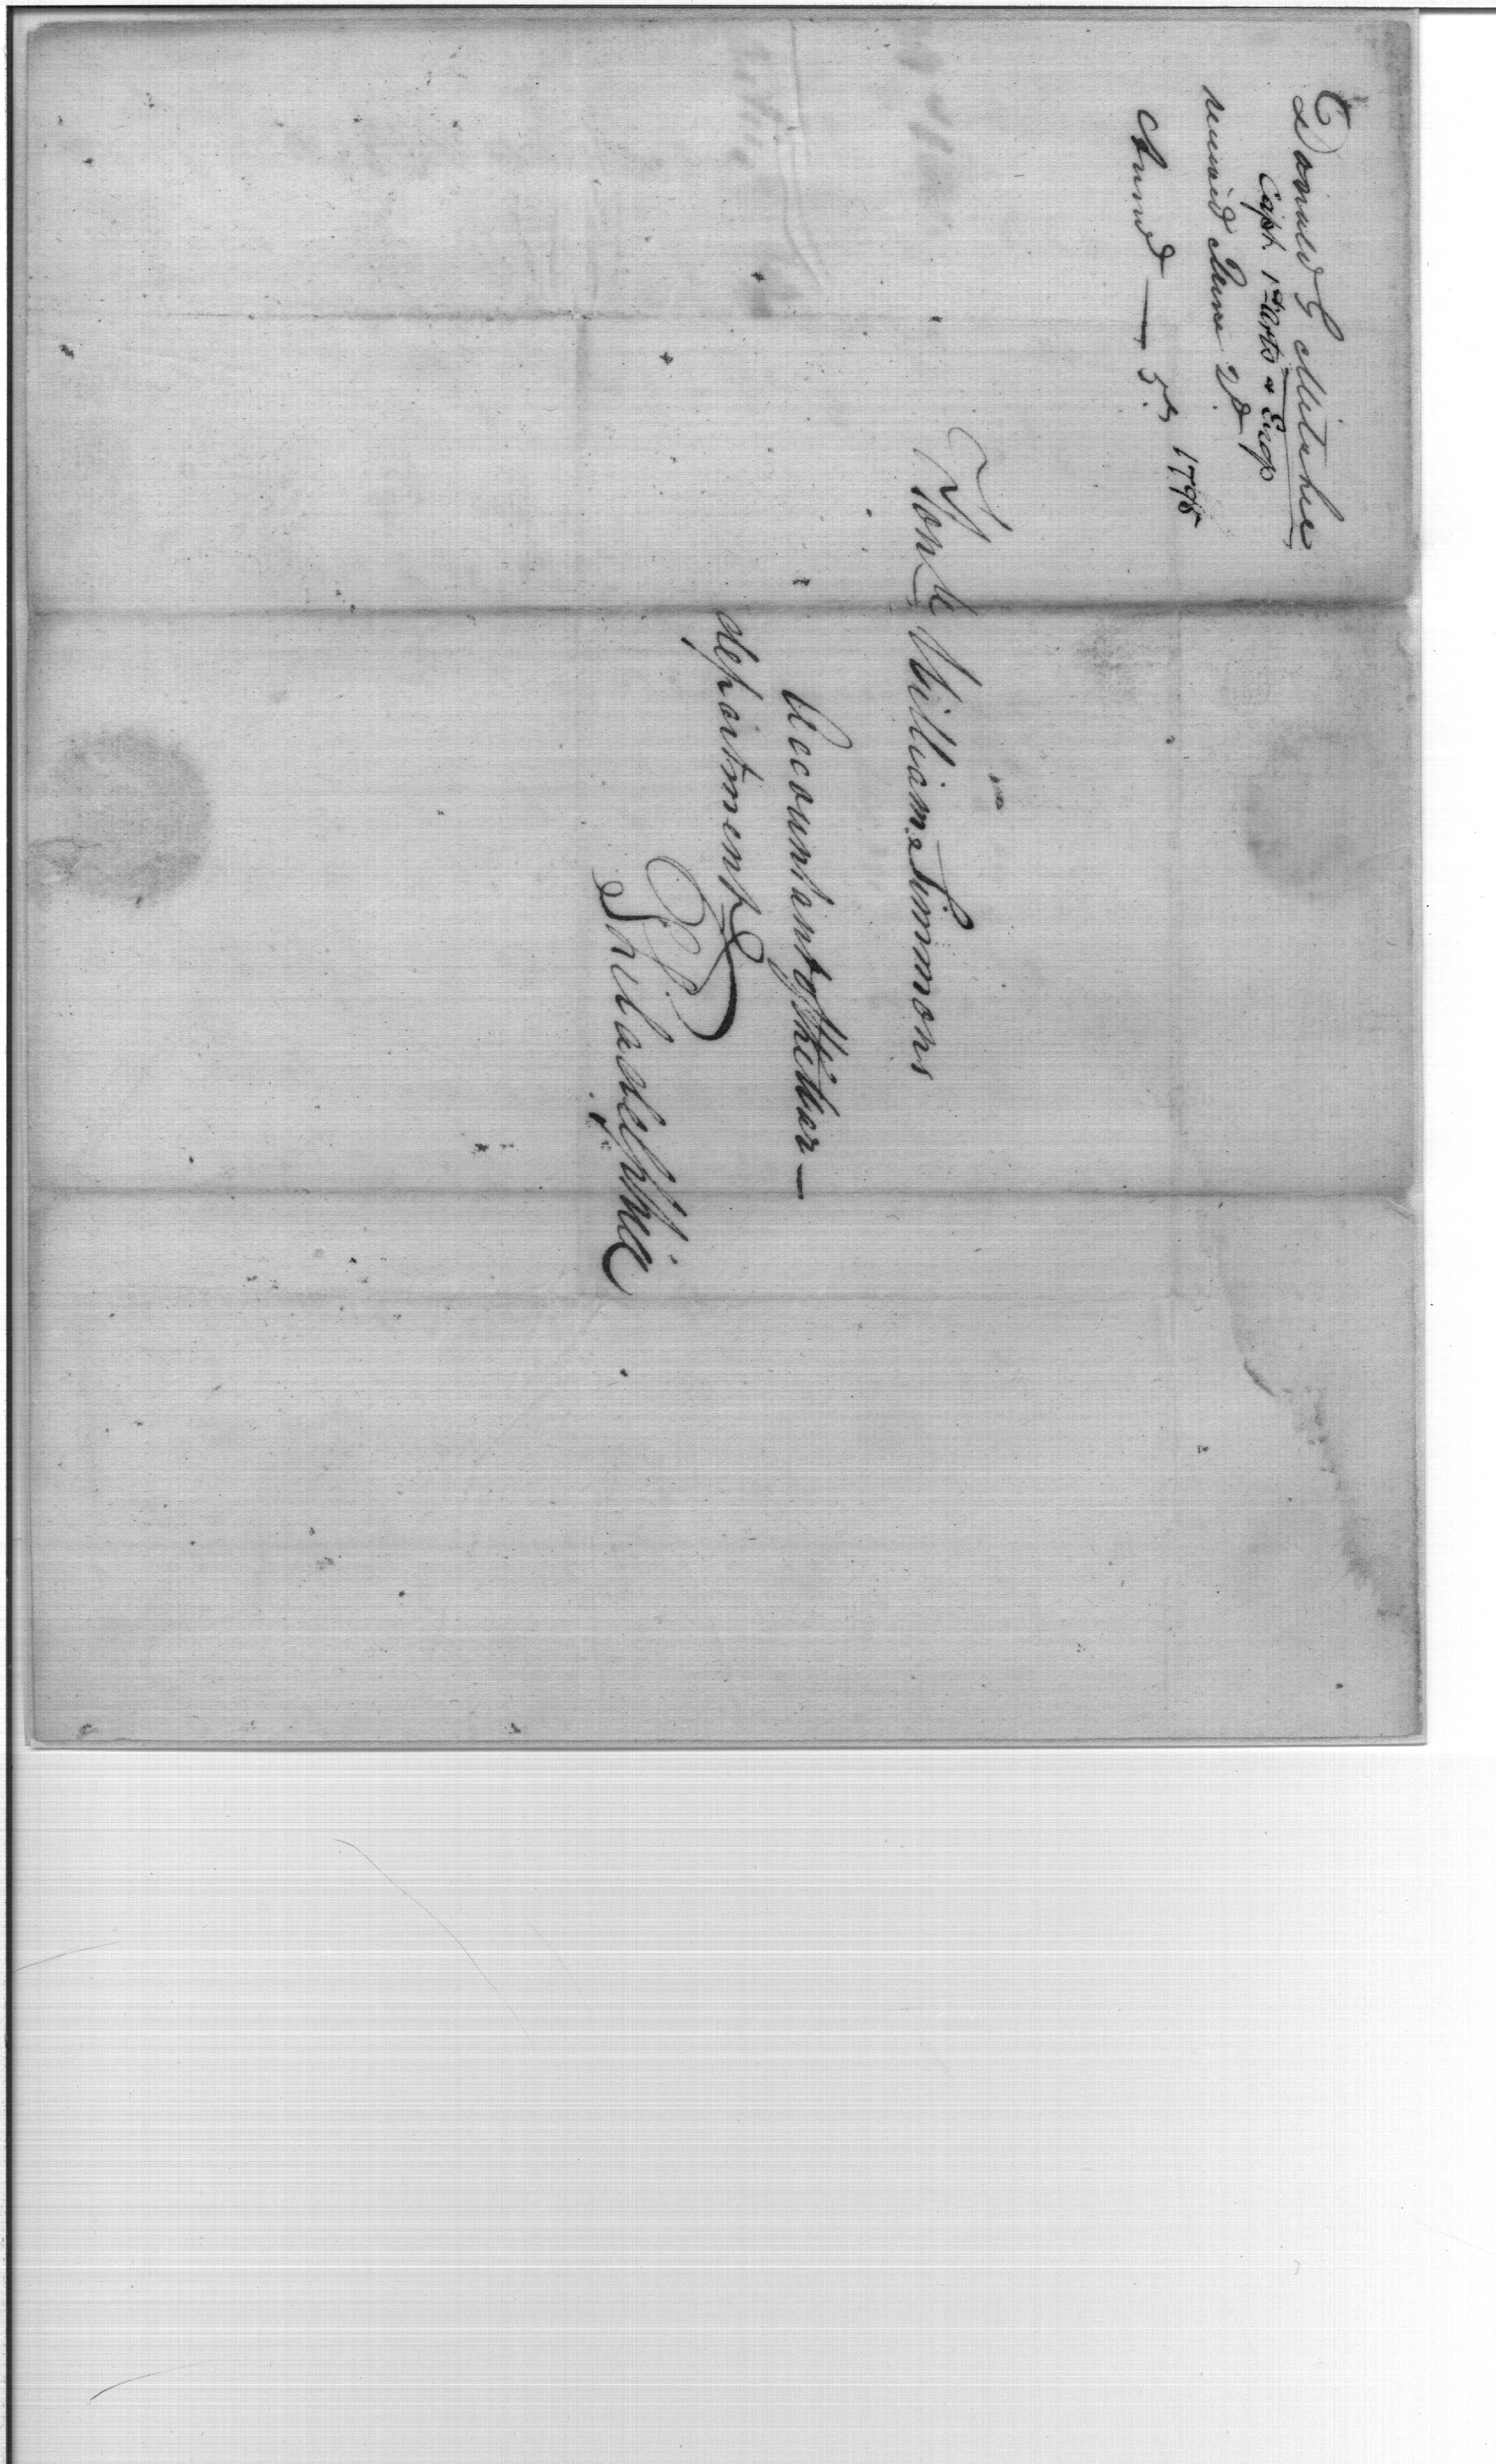 Donald G Mitchell
Capt. 1st Arts & Engs
received June 2d
Answd — 5th 1798
Honble William Simmons
Accountant of the War —
department
Philadelphia